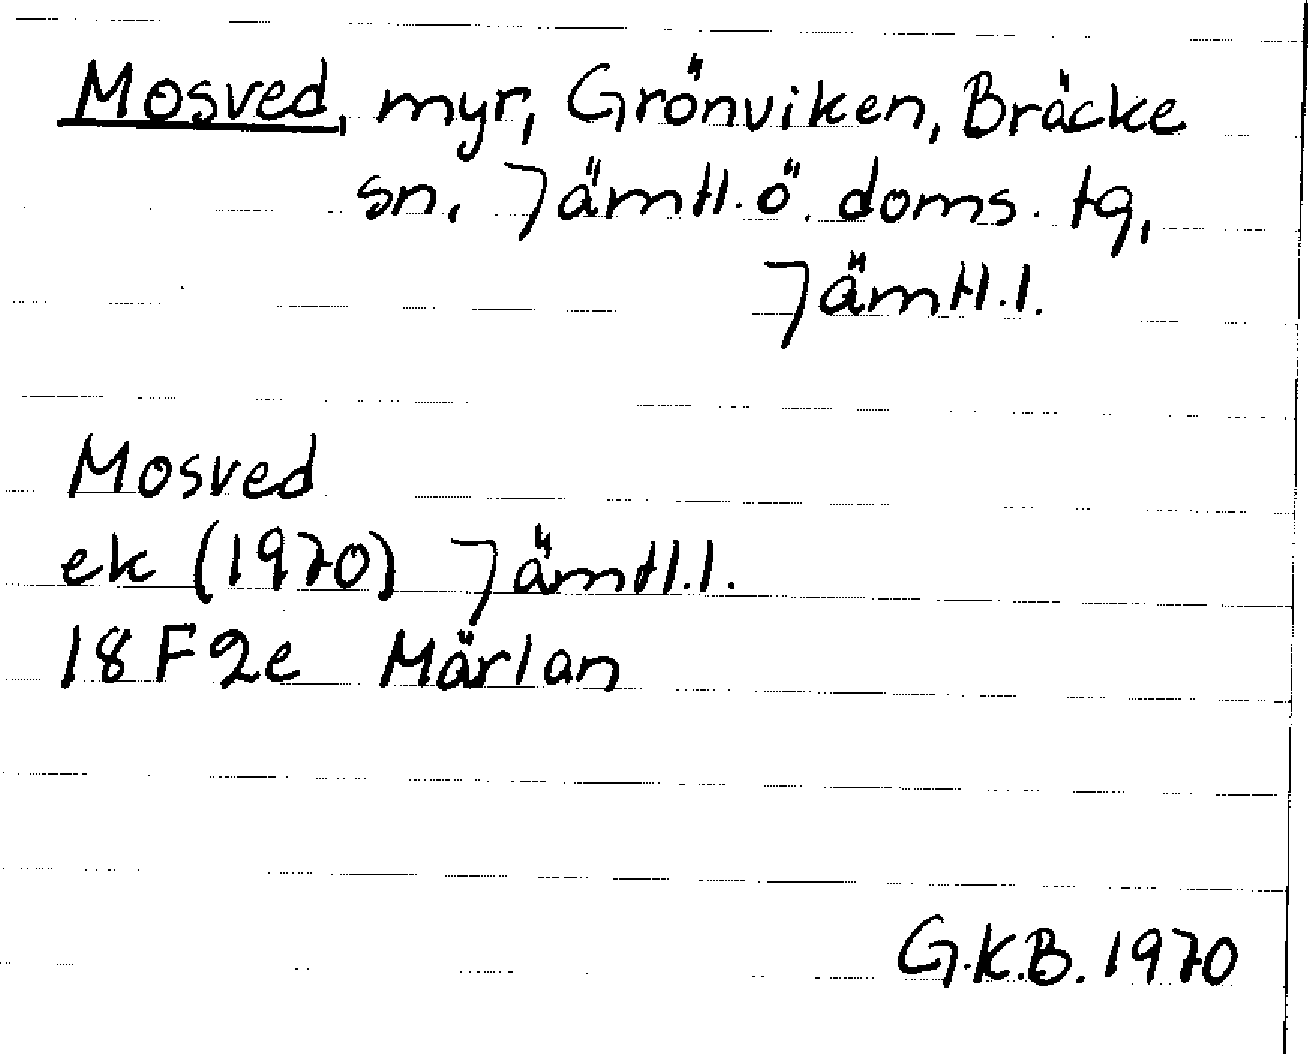 Mosved, myr, Grönviken, Bräcke
sn, Jämtl. ö. doms. tg,
Jämtl. l.
Mosved
ek (1970) Jämtl. l.
18 F 2e Märlan
G.K.B. 1970